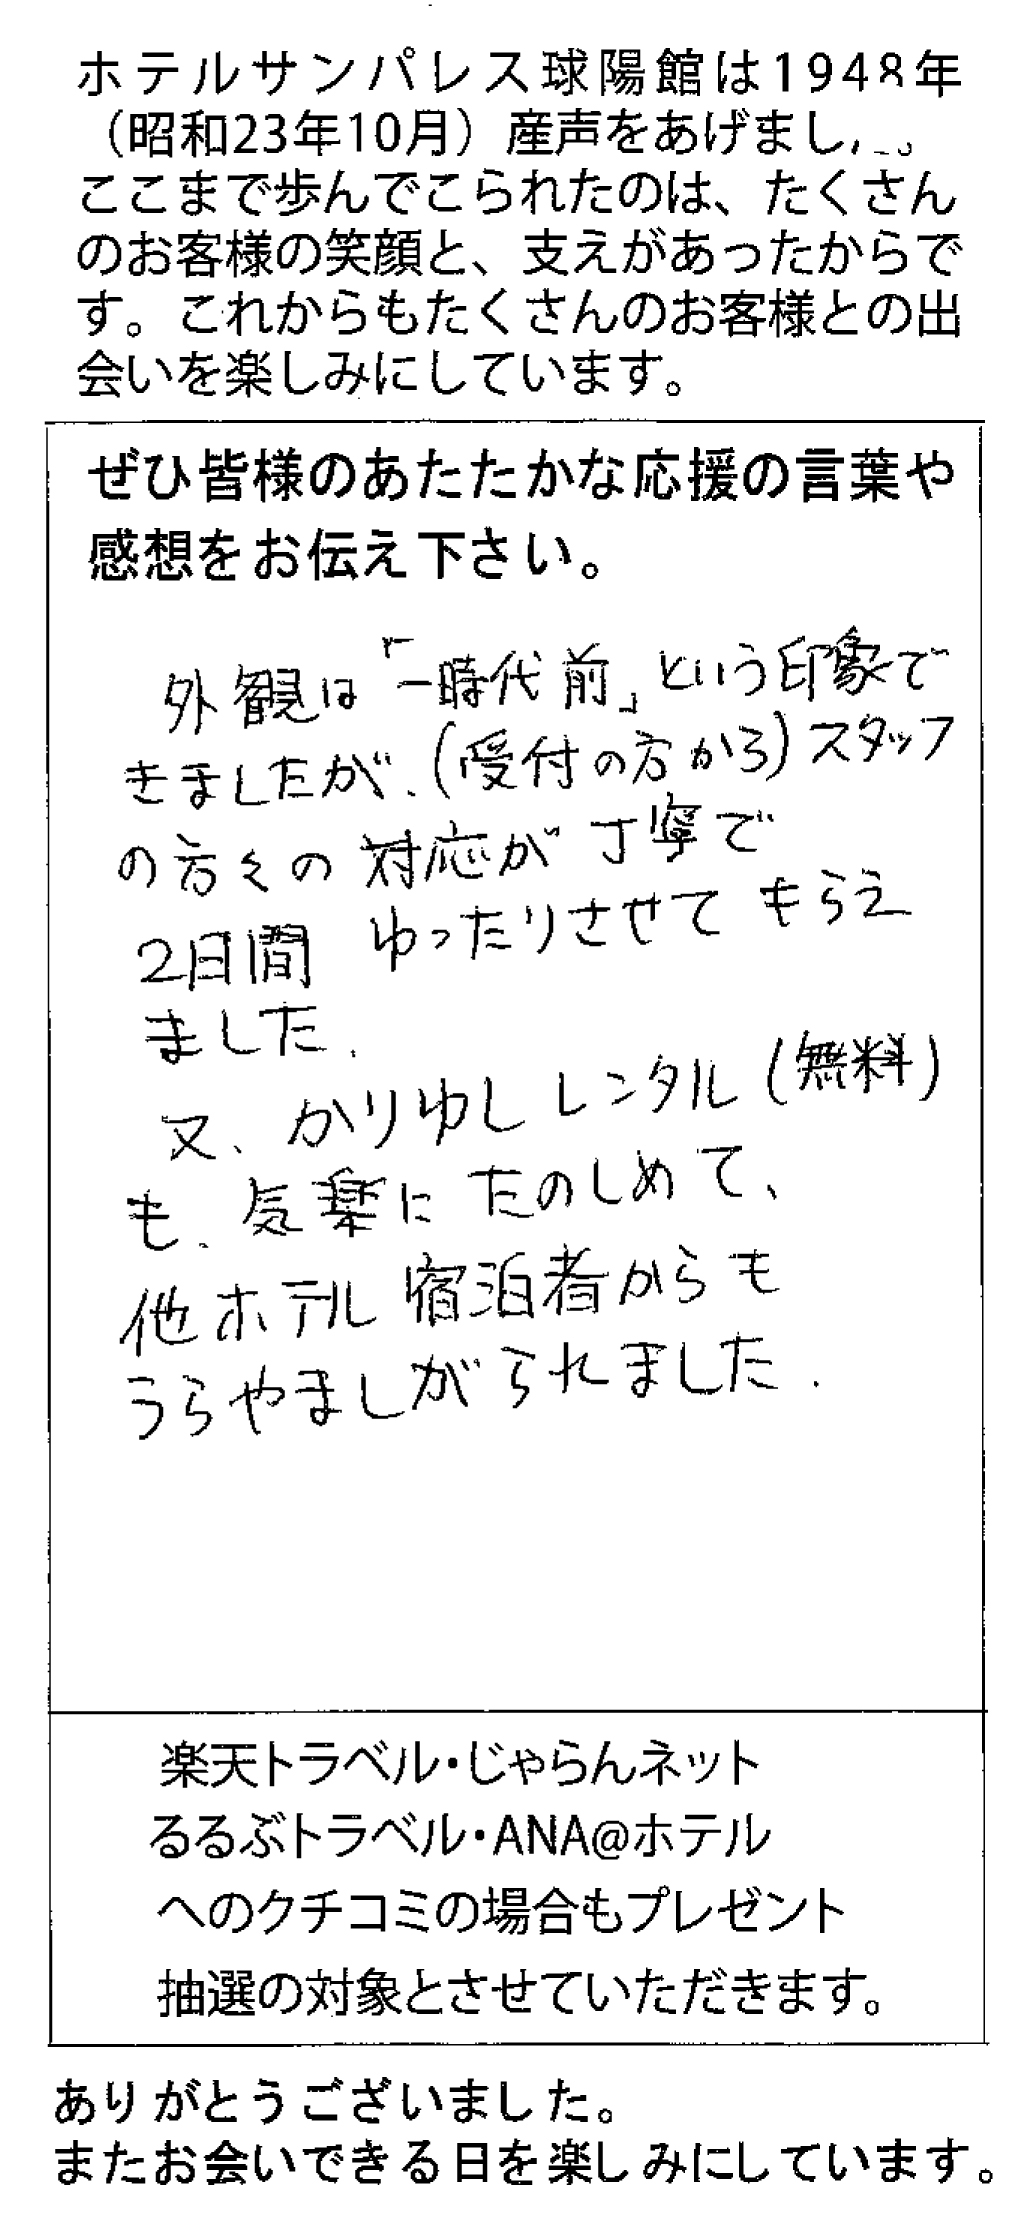 ホテルサンパレス球陽館は1948年
（昭和23年10月）産声をあげました。
ここまで歩んでこられたのは、たくさん
のお客様の笑顔と、支えがあったからで
す。これからもたくさんのお客様との出
会いを楽しみにしています。
ぜひ皆様のあたたかな応援の言葉や
感想をお伝え下さい。
外観は「一時代前」という印象で
きましたが、(受付の方から)スタッフ
の方々の対応が丁寧で
2日間 ゆったりさせてもらえ
ました.
又、かりゆしレンタル(無料)
も、気楽にたのしめて、
他ホテル宿泊者からも
うらやましがられました.
楽天トラベル・じゃらんネット
るるぶトラベル・ANA@ホテル
へのクチコミの場合もプレゼント
抽選の対象とさせていただきます。
ありがとうございました。
またお会いできる日を楽しみにしています。